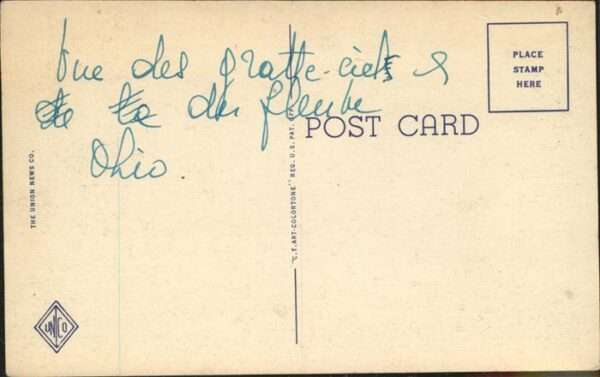 Vue des gratte-ciels &
du fleuve
Ohio.
POST CARD
PLACE
STAMP
HERE
THE UNION NEWS CO.
"C.T. ART-COLORTONE" REG. U.S. PAT. OFF.
UNICO